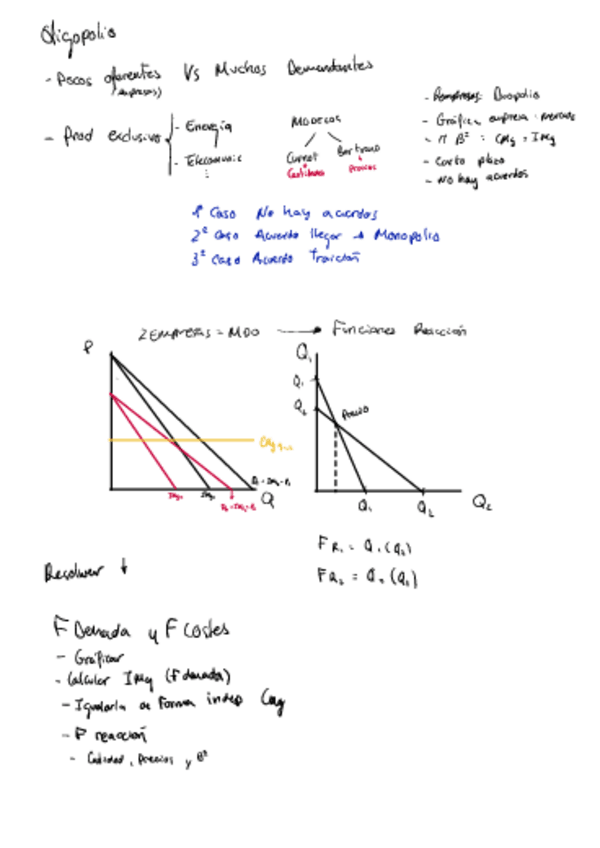 Oligopolio
- Pocos oferentes Vs Muchos Demandantes
(empresas)
- Prod exclusivo
- Energía
- Telecomunic
⋮
Modelos
Curnot
Cantidades
Bertrand
Precios
- 2empresas: Duopolio
- Gráfica empresa - mercado
- π Bº : CMg = IMg
- Corto plazo
- No hay acuerdos
1º Caso No hay acuerdos
2º Caso Acuerdo llegar → Monopolio
3º Caso Acuerdo Traición
2 EMPRESAS = MDO → Funciones Reacción
P
CMg
IMg
IMg
Q
Q1
Q1
Q2
Punto
Q1
Q2
Q2
FR1 = Q1 (Q2)
FR2 = Q2 (Q1)
Resolver ↓
F Demada y F Costes
- Gráficar
- Calcular IMg (F demada)
- Igualarla de Forma indep CMg
- F reacción
- Cantidad, precios y Bº